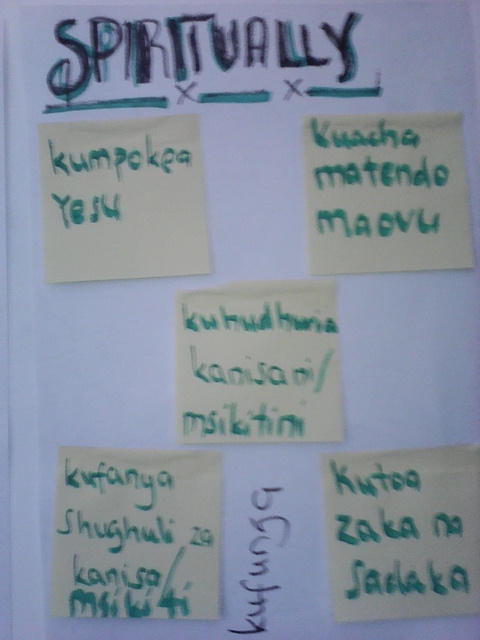 SPIRITUALLY
x x
kumpokea
Yesu
Kuacha
matendo
maovu
kuhudhuria
kanisani/
msikitini
kufanya
Shughuli za
kanisa/
msikiti
kufunga
Kutoa
zaka na
Sadaka